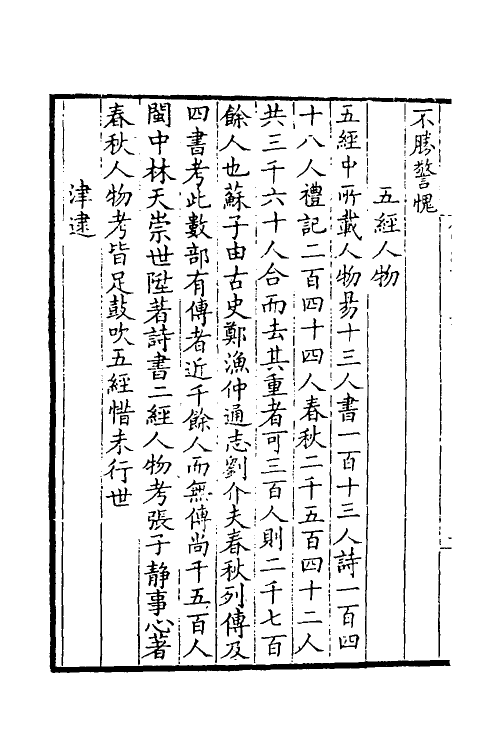 不勝警愧
五經人物
五經中所載人物易十三人書一百十三人詩一百四
十八人禮記二百四十四人春秋二千五百四十二人
共三千六十人合而去其重者可三百人則二千七百
餘人也蘇子由古史鄭漁仲通志劉介夫春秋列傳及
四書考此數部有傳者近千餘人而無傳尚千五百人
閩中林天崇世陞著詩書二經人物考張子靜事心著
春秋人物考皆足鼓吹五經惜未行世
津逮